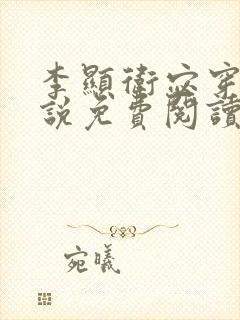 李顯衛宓穿
說免費閱讀
宛曦